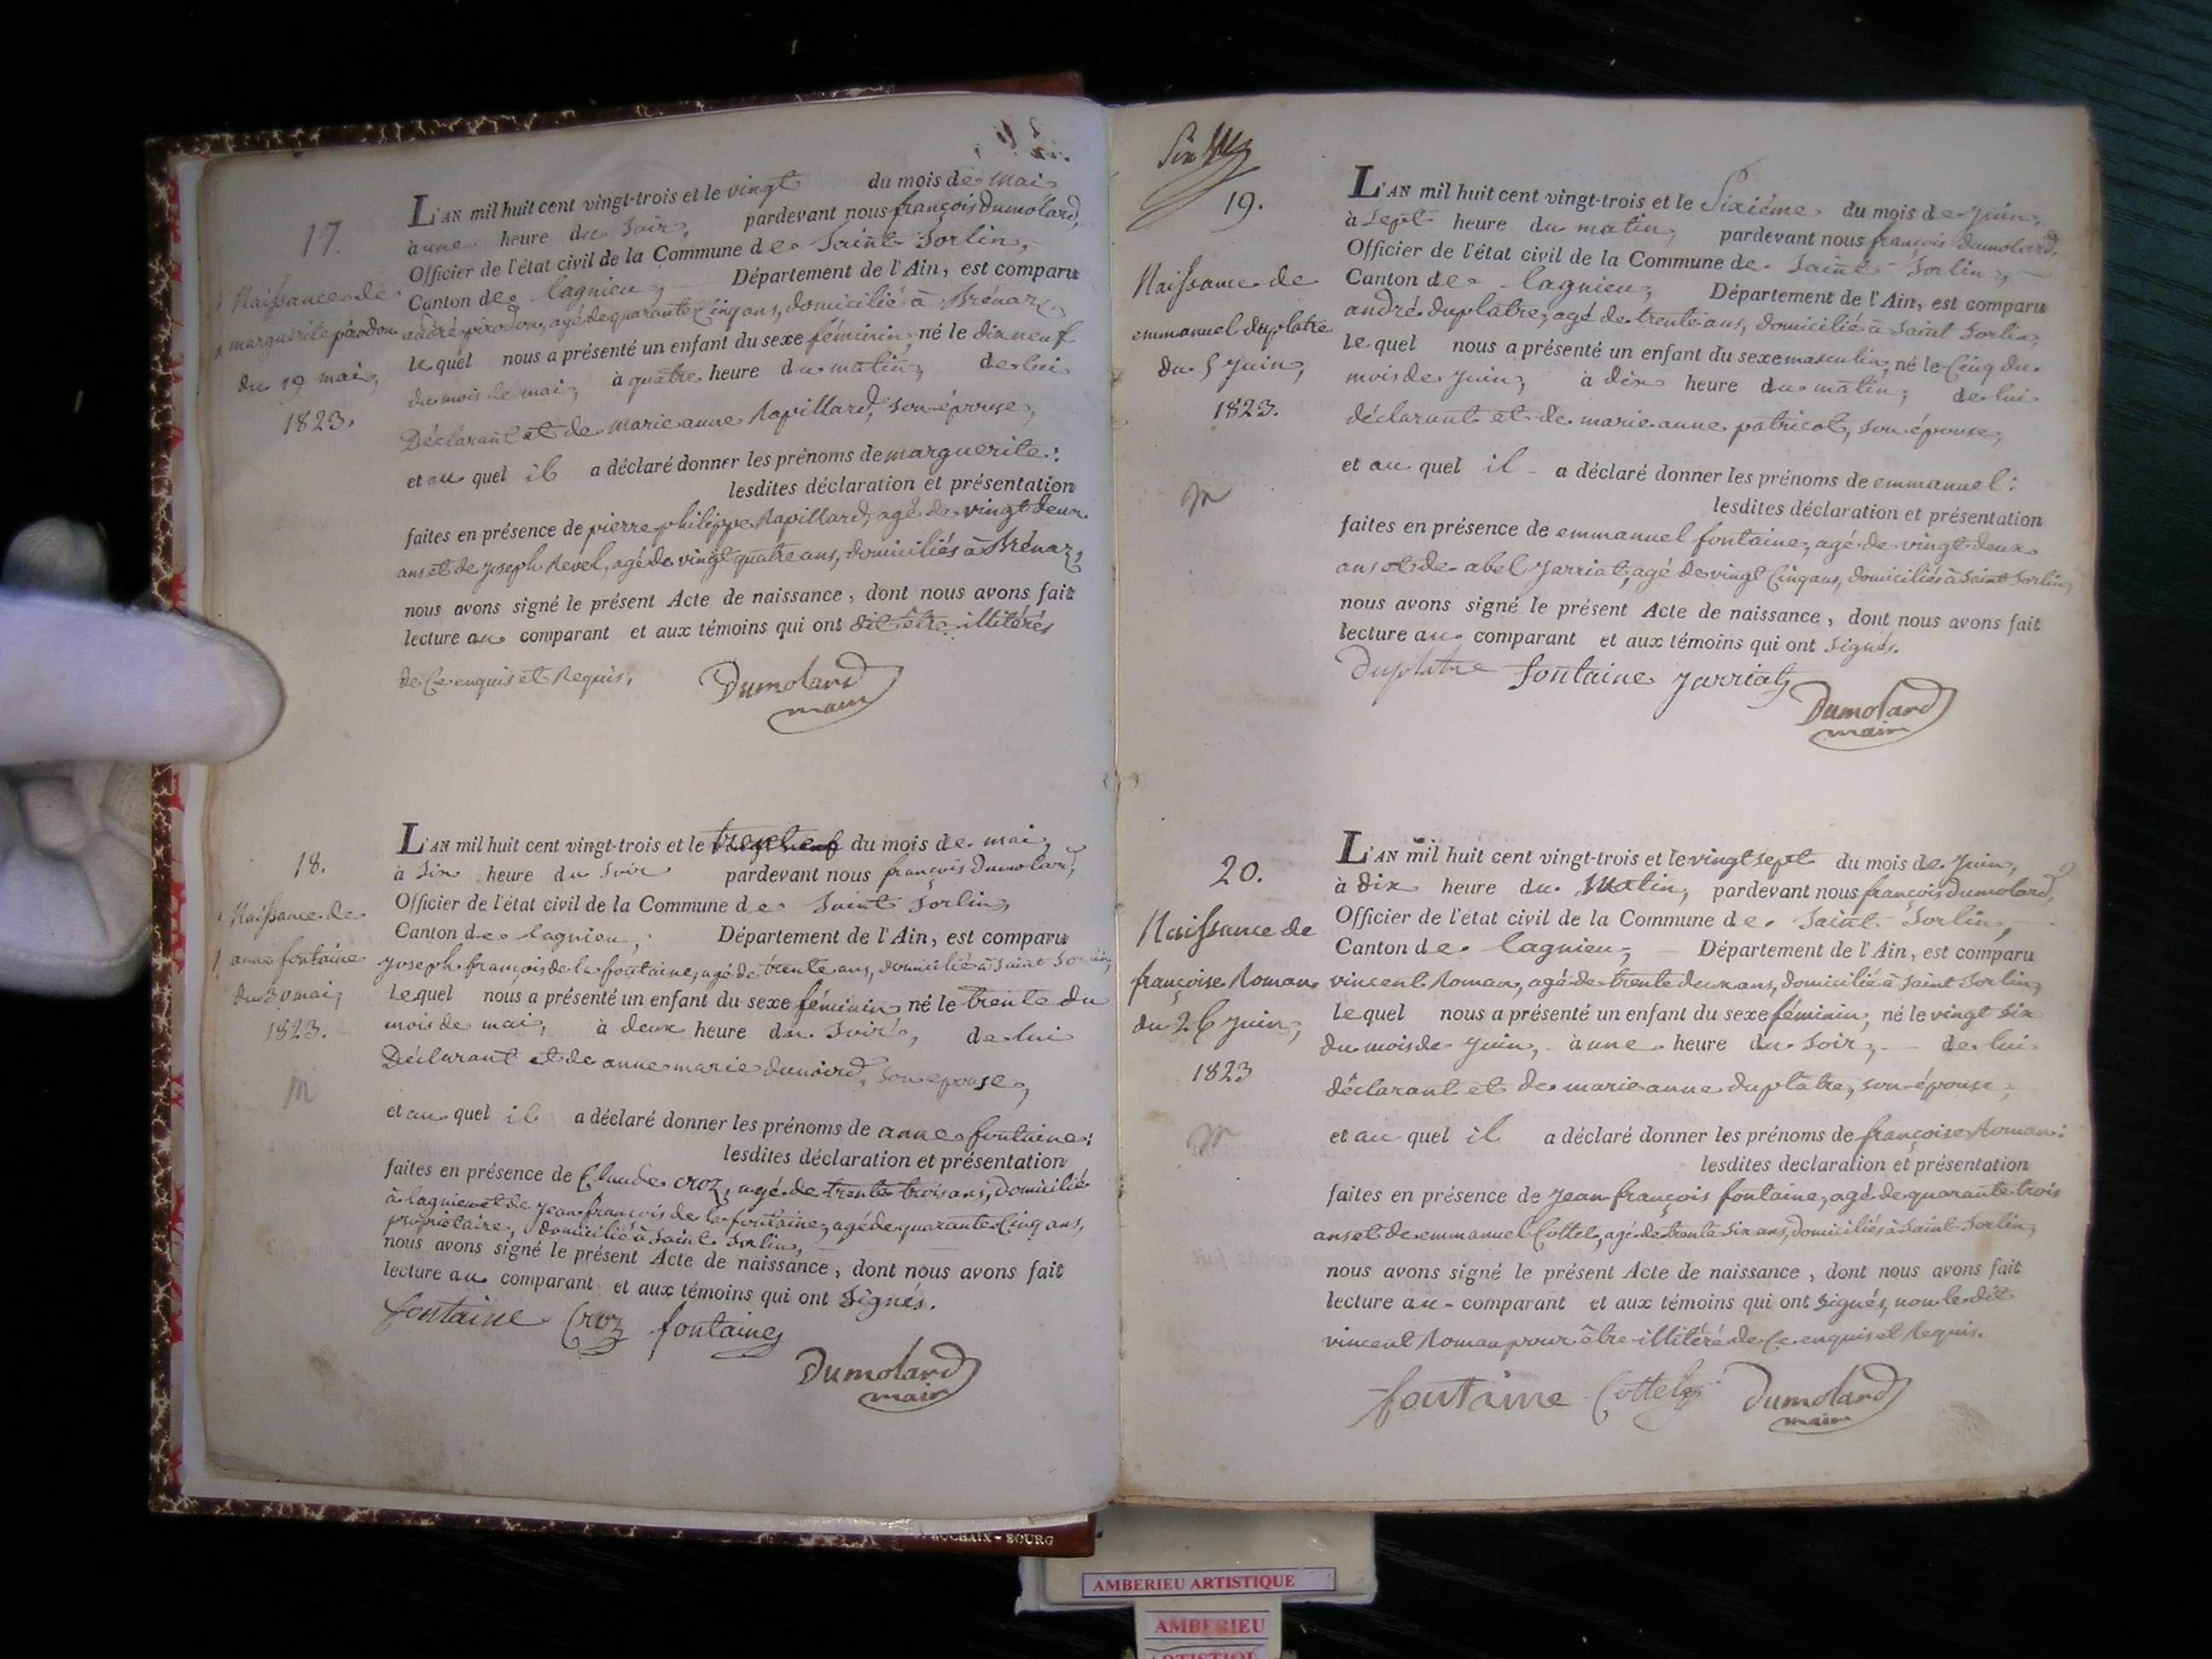 17.
Naissance de
marguerite pirodon
du 19 mai,
1823.
L'AN mil huit cent vingt-trois et le vingt du mois de mai
à une heure du soir, pardevant nous françois Dumolard,
Officier de l'état civil de la Commune de Saint Sorlin,
Canton de lagnieu, Département de l'Ain, est comparu
andré pirodon, agé de quarante Cinq ans, domicilié à Brénaz,
lequel nous a présenté un enfant du sexe féminin, né le dix neuf
du mois de mai, à quatre heure du matin, de lui
Déclarant et de marie anne Rapillard, son épouse,
et au quel il a déclaré donner les prénoms de marguerite:
lesdites déclaration et présentation
faites en présence de pierre philippe Rapillard, agé de vingt deux
ans et de joseph Revel, agé de vingt quatre ans, domiciliés à Brénaz,
nous avons signé le présent Acte de naissance, dont nous avons fait
lecture au comparant et aux témoins qui ont dit être illitérés
de Ce enquis et Requis.
Dumolard
maire
18.
Naissance de
anne fontaine
du 30 mai,
1823.
m
L'AN mil huit cent vingt-trois et le du mois de mai,
à Six heure du soir pardevant nous françois Dumolard,
Officier de l'état civil de la Commune de Saint Sorlin,
Canton de lagnieu, Département de l'Ain, est comparu
joseph françois de la fontaine, agé de trente ans, domicilié à Saint Sorlin,
lequel nous a présenté un enfant du sexe féminin, né le trente du
mois de mai, à deux heure du Soir, de lui
Déclarant et de anne marie dunoird, son epouse,
et au quel il a déclaré donner les prénoms de anne fontaine:
lesdites déclaration et présentation
faites en présence de Claude Croz, agé de trente trois ans, domicilié
à lagnieu et de jean françois de la fontaine, agé de quarante Cinq ans,
propriétaire, domicilié à Saint Sorlin,
nous avons signé le présent Acte de naissance, dont nous avons fait
lecture au comparant et aux témoins qui ont Signés.
fontaine Croz fontaine
Dumolard
maire
Six
19.
Naissance de
emmanuel duplatre
du 5 juin,
1823.
m
L'AN mil huit cent vingt-trois et le Sixiéme du mois de juin,
à Sept heure du matin, pardevant nous françois dumolard,
Officier de l'état civil de la Commune de Saint Sorlin,
Canton de lagnieu, Département de l'Ain, est comparu
andré duplatre, agé de trente ans, domicilié à Saint Sorlin,
lequel nous a présenté un enfant du sexe masculin, né le Cinq du
mois de juin, à dix heure du matin, de lui
déclarant et de marie anne patricot, son épouse,
et au quel il a déclaré donner les prénoms de emmanuel:
lesdites déclaration et présentation
faites en présence de emmanuel fontaine, agé de vingt deux
ans et de abel jarriat, agé de vingt Cinq ans, domiciliés à Saint Sorlin,
nous avons signé le présent Acte de naissance, dont nous avons fait
lecture au comparant et aux témoins qui ont signés.
Duplatre fontaine jarriat
Dumolard
maire
20.
Naissance de
françoise Roman
du 26 juin,
1823
m
L'AN mil huit cent vingt-trois et le vingt sept du mois de juin,
à dix heure du Matin, pardevant nous françois dumolard,
Officier de l'état civil de la Commune de Saint Sorlin,
Canton de lagnieu, Département de l'Ain, est comparu
vincent Roman, agé de trente deux ans, domicilié à Saint Sorlin,
lequel nous a présenté un enfant du sexe féminin, né le vingt six
du mois de juin, à une heure du Soir, de lui
déclarant et de marie anne duplatre, son épouse,
et au quel il a déclaré donner les prénoms de françoise Roman:
lesdites declaration et présentation
faites en présence de jean françois fontaine, agé de quarante trois
ans et de emmanuel Cottel, agé de trente Six ans, domiciliés à Saint Sorlin,
nous avons signé le présent Acte de naissance, dont nous avons fait
lecture au comparant et aux témoins qui ont signés, non le dit
vincent Roman pour être illitéré de Ce enquis et Requis.
fontaine Cottel Dumolard
maire
BOURG
AMBERIEU ARTISTIQUE
AMBERIEU
ARTISTIQUE